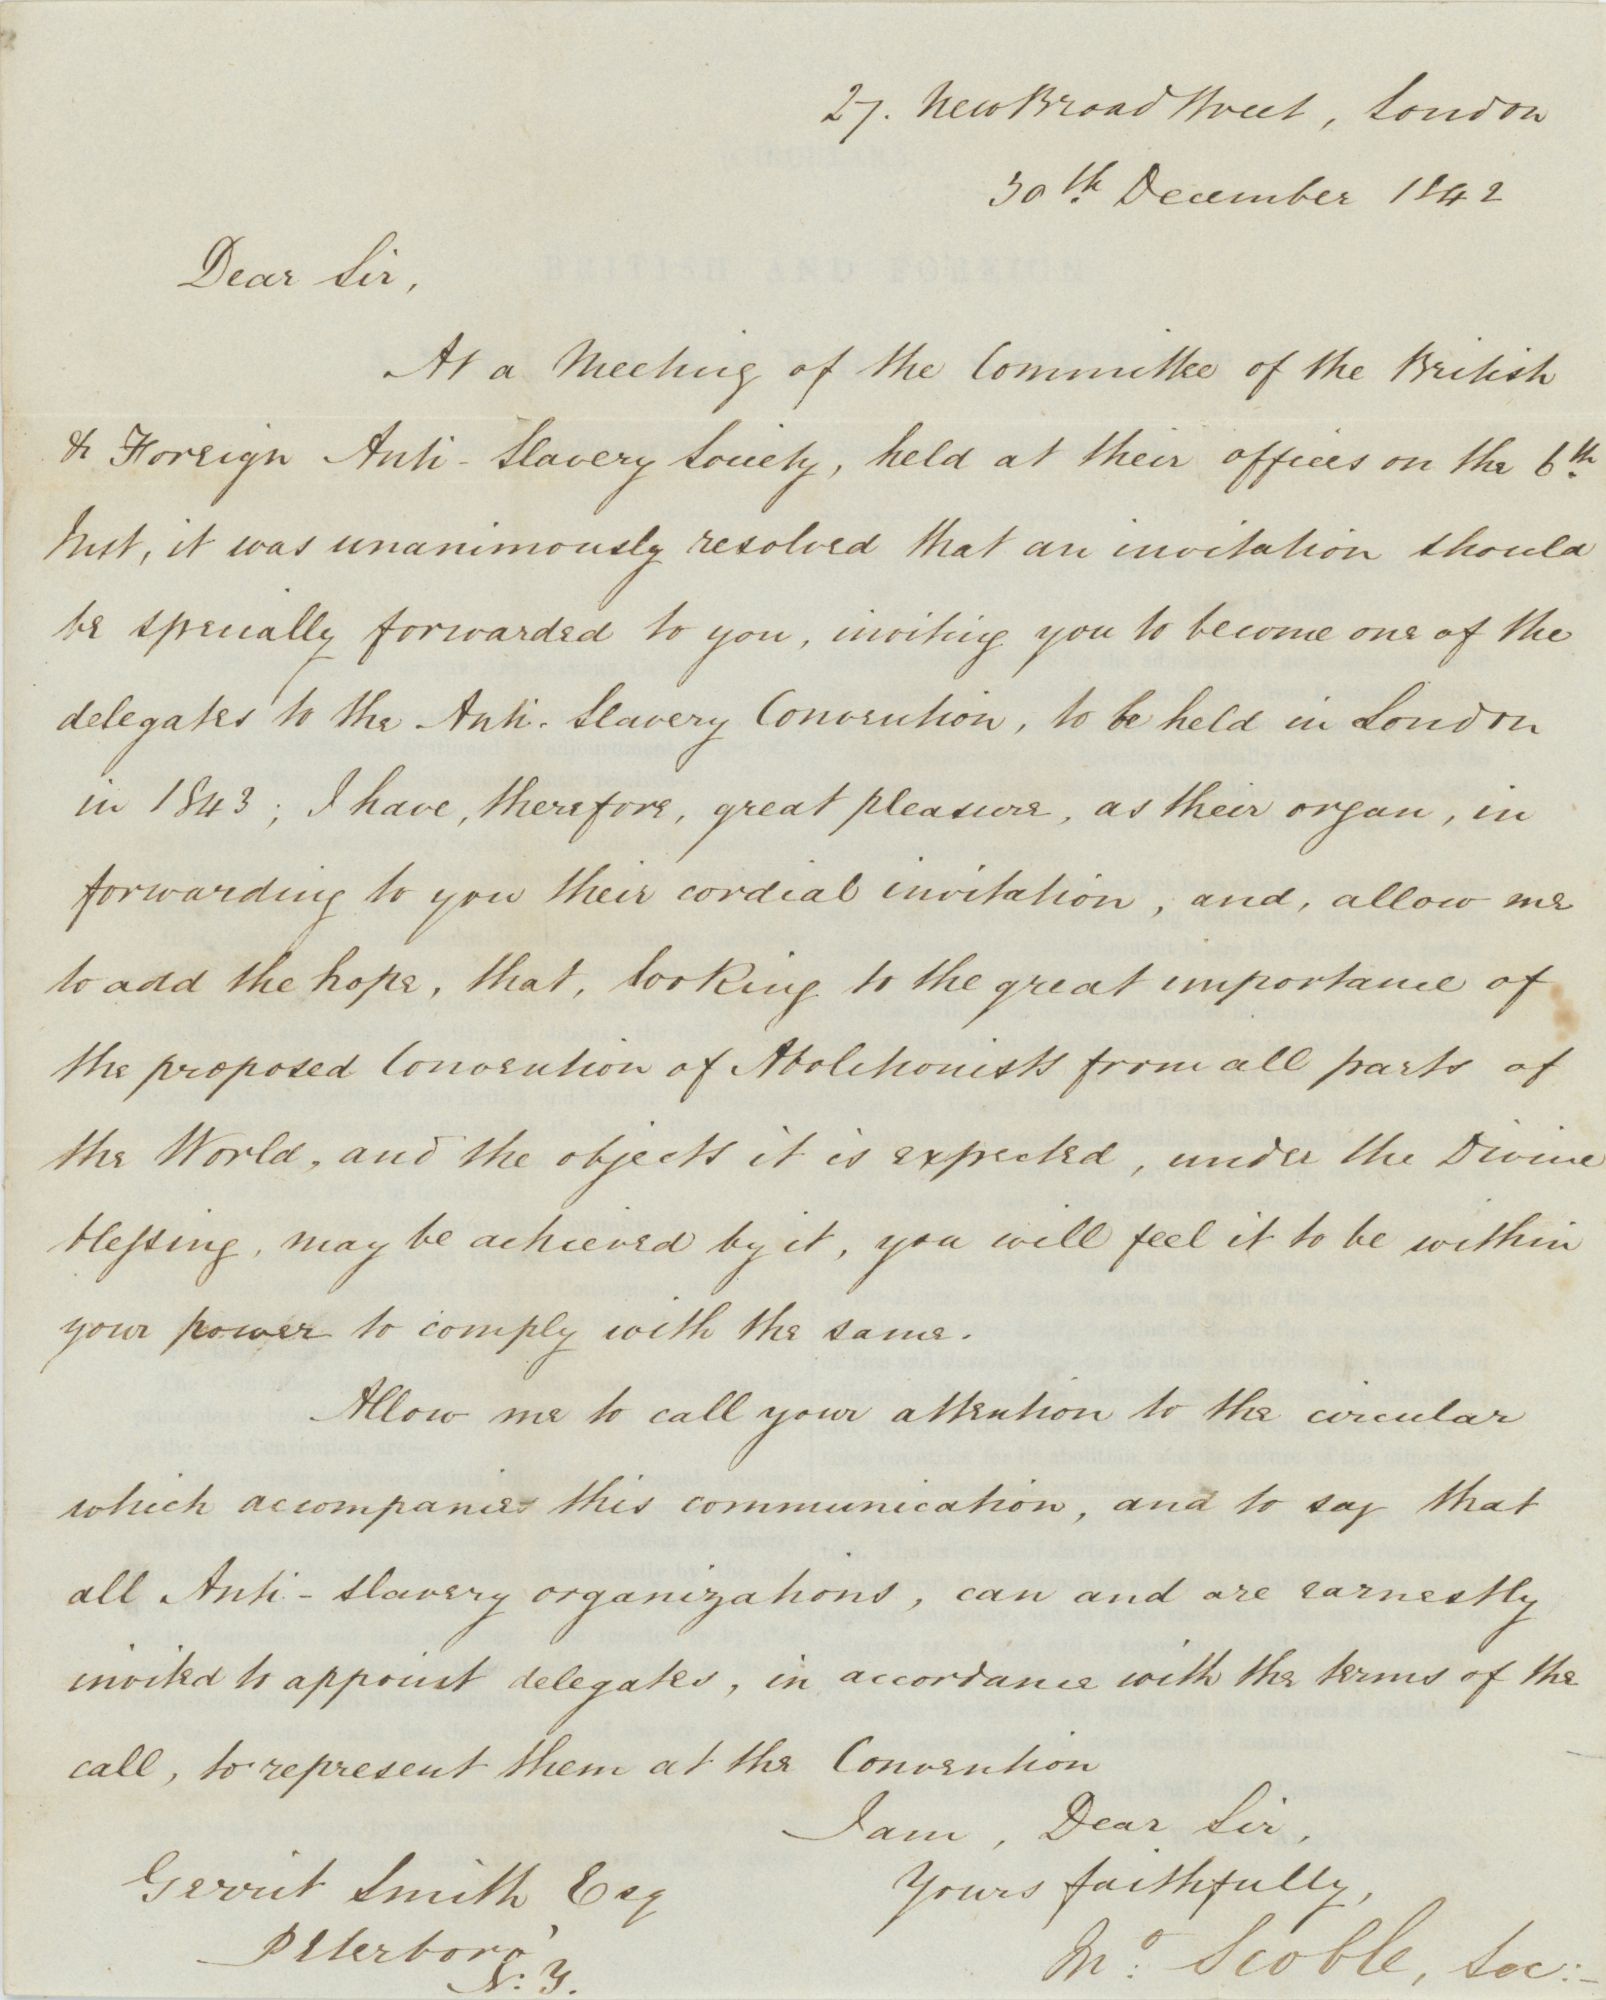 27. New Broad Street, London
30th. December 1842
Dear Sir,
At a Meeting of the Committee of the British
& Foreign Anti-Slavery Society, held at their offices on the 6th.
Inst, it was unanimously resolved that an invitation should
be specially forwarded to you, inviting you to become one of the
delegates to the Anti-Slavery Convention, to be held in London
in 1843; I have, therefore, great pleasure, as their organ, in
forwarding to you their cordial invitation, and, allow me
to add the hope, that, looking to the great importance of
the proposed Convention of Abolitionists from all parts of
the World, and the objects it is expected, under the Divine
blessing, may be achieved by it, you will feel it to be within
your power to comply with the same.
Allow me to call your attention to the circular
which accompanies this communication, and to say that
all Anti-Slavery organizations, can and are earnestly
invited to appoint delegates, in accordance with the terms of the
call, to represent them at the Convention
I am, Dear Sir,
Yours faithfully,
Jno. Scoble, Sec:-
Gerrit Smith Esq
Peterboro'
N: Y.